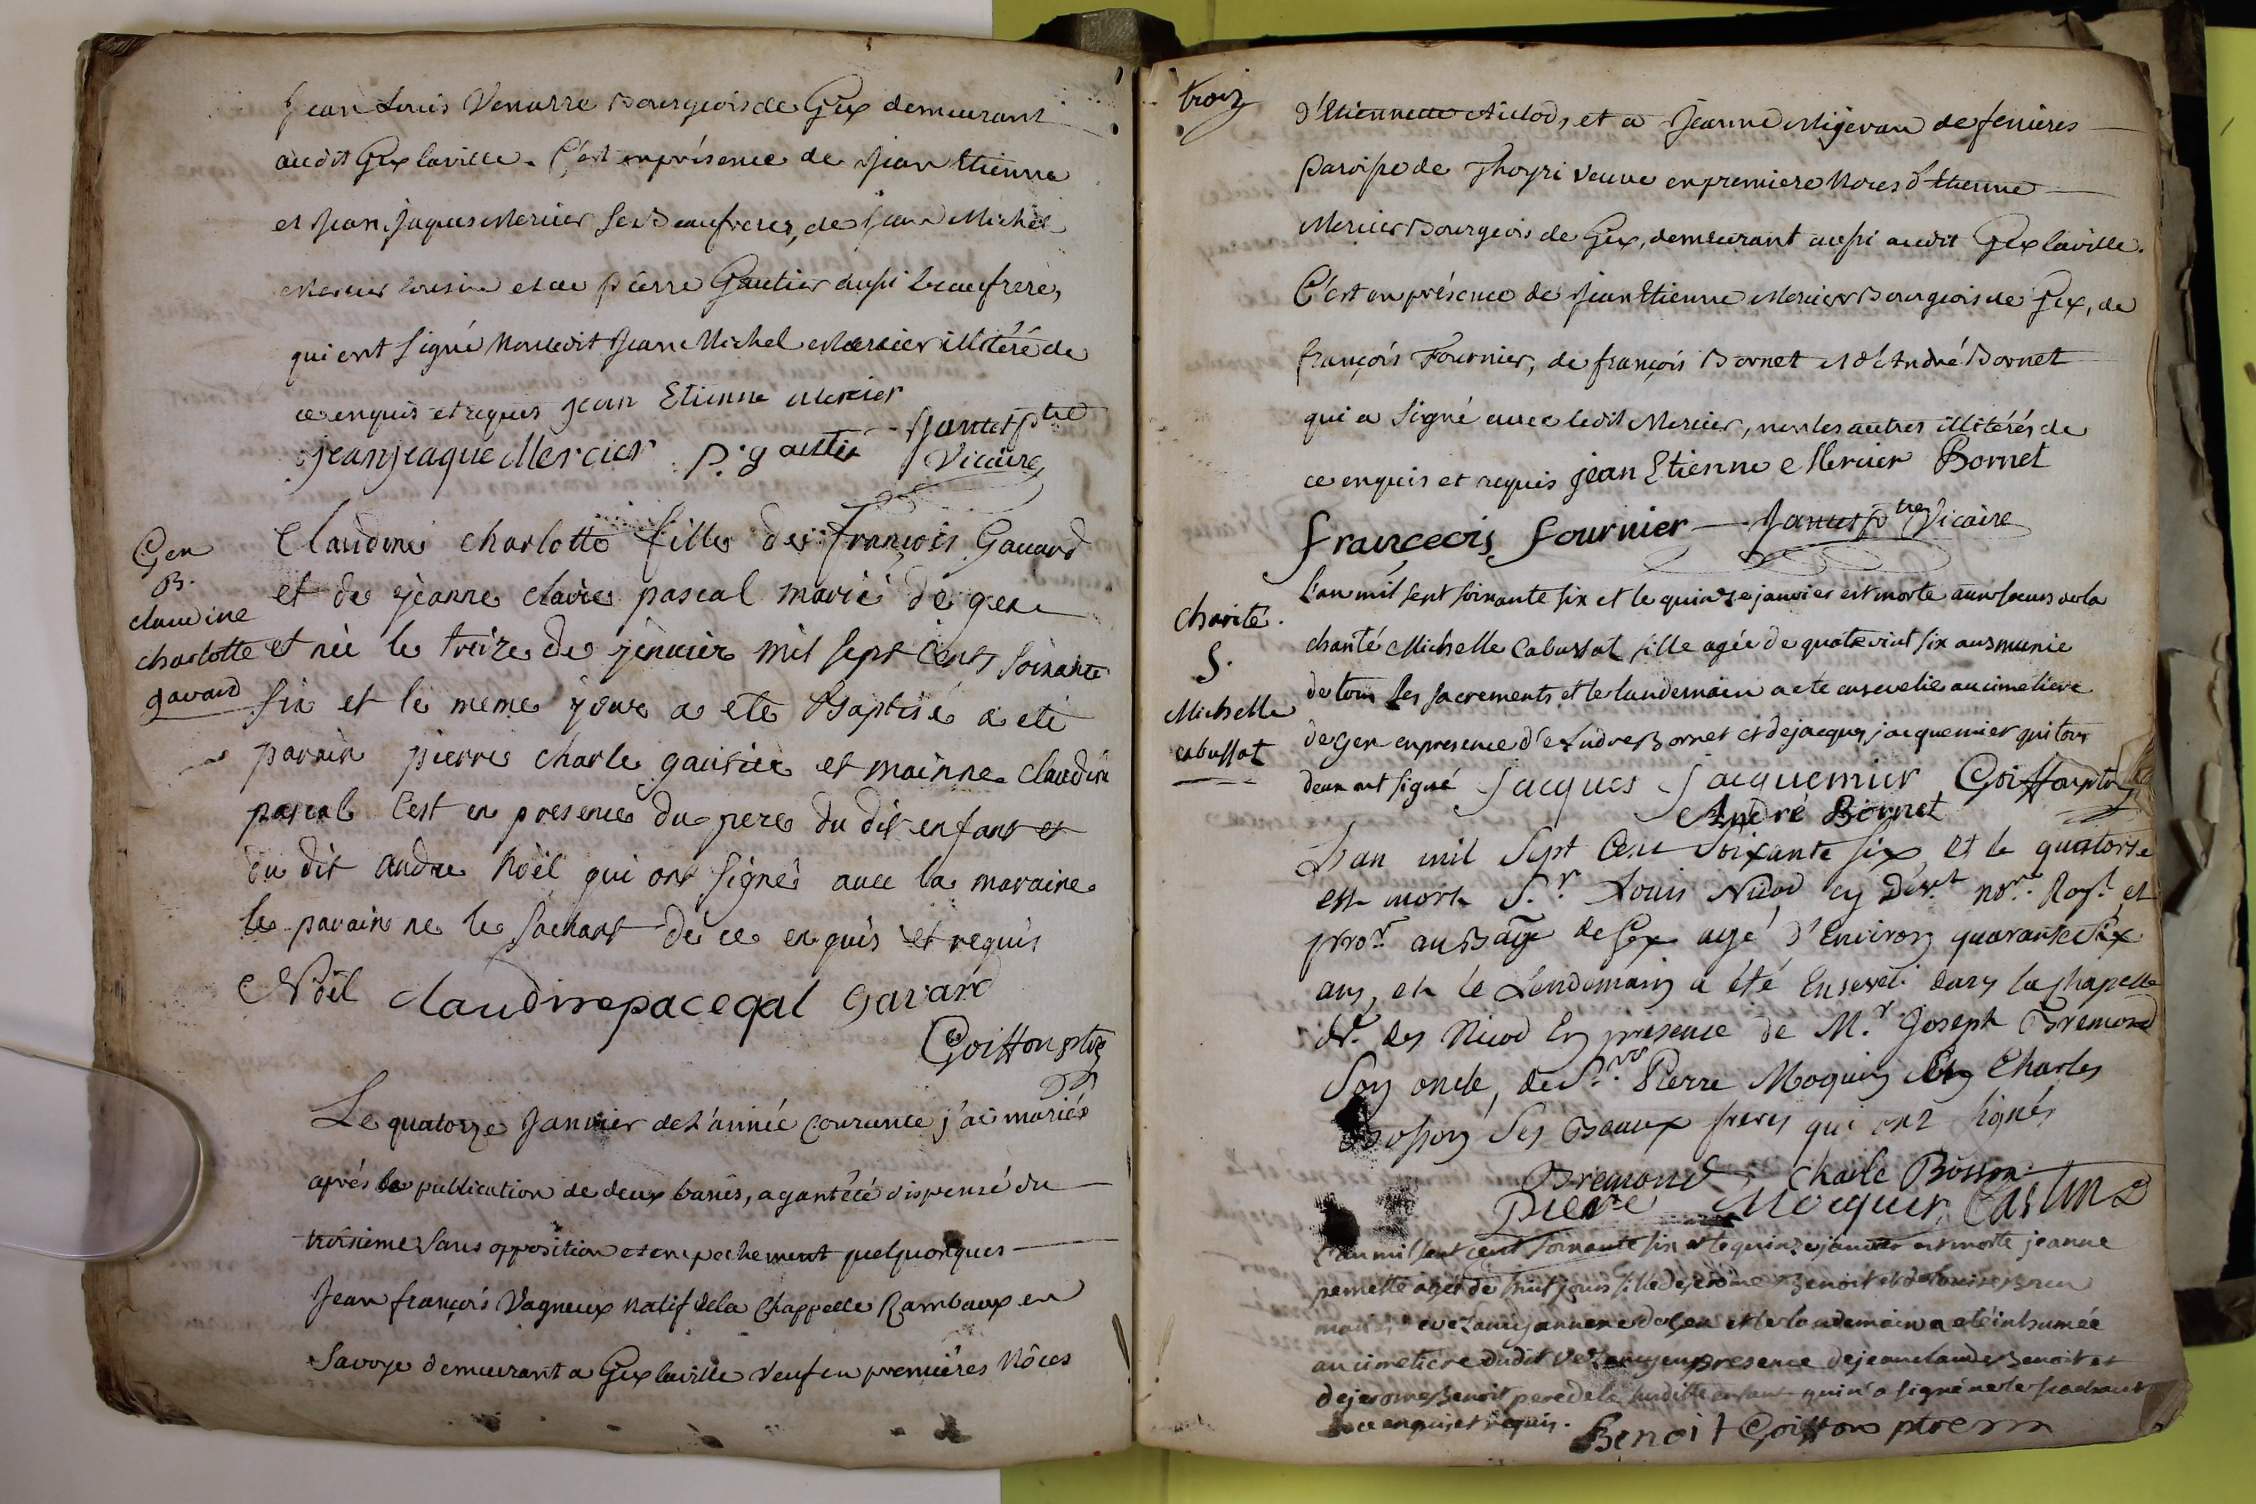 Jean Louis Venarre Bourgeois de Gex demeurant
audit Gex laville. C'est en présence de Jean Etienne
et Jean Jaques Mercier ses Beaufreres, de Jean Michel
Mercier cousin et de pierre Gautier aussi beaufrere,
qui ont signé non ledit Jean Michel Mercier illitéré de
ce enquis et requis Jean Etienne Mercier
jeanjeaque Mercier P. gautie Janet ptre
Vicaire
Gex
B.
claudine
charlotte
gavard
Claudine charlotte fille de françois Gavard
et de jeanne claire pascal marié de gex
et née le treize de jenvier mil sept cents soixante
six et le meme jour a ete Baptisé a eté
parain pierre charle gautier et mainne claudine
pascal C'est en presence du pere du dit enfant et
du dit andre Noël qui ont signés avec la maraine
le parain ne le sachant de ce enquis et requis
Noël claudinepacegal Gavard
Goiffon ptre
Le quatorze Janvier de l'année courante j'ai mariés
aprés la publication de deux banës, ayant été dispensé du
troisieme sans opposition et enpechement quelquonques
Jean françois Vagneux natif de la Chappelle Rambaux en
Savoye demeurant a Gex laville veuf en premiéres Nôces
trois
d'Etiennette Niclod, et a Jeanne Migevan de fenieres
Paroisse de Thoyri veuve en premiere Noces d'Etienne
Mercier Bourgeois de Gex, demeurant aussi audit Gex laville.
C'est en présence de Jean Etienne Mercier Bourgeois de Gex, de
françois Fournier, de françois Bornet et d'André Bornet
qui a signé avec ledit Mercier, non les autres illitérés de
ce enquis et requis jean Etienne Mercier Bornet
franceois fournier Janet ptre Vicaire
charité.
S.
Michelle
cabussat
L'an mil sept soixante six et le quinze janvier est morte aux soeurs de la
charité Michelle Cabussat fille agée de quatrevint six ans munie
de tous les sacrements et le landemain a ete ensevelie au cimetiere
de gex en presence d'Andre Bornet et de jacques jacquemier qui tous
deux ont signé Jacques Jacquemier Goiffon ptre
André Bornet
L'an mil Sept Cent Soixante Six, et le quatorze
est mort Sr. Louis Nicod cy devt nore. Royl. et
pror. au Bage de Gex agé d'Environ quarante Six
ans, et le Lendemain a été Enseveli dans la Chapelle
des Nicod En presence de Mr. Joseph Bremond
Son oncle, de Srs. Pierre Moquin et Charles
Bosson Ses Beaux freres qui ont signés
Bremond Charle Bosson
Pierre Mocquin Castin
L'an mil sept cent soixante six et le quinze janvier est morte jeanne
pernette agée de huit jours fille de jerôme Benoit et de louise Brun
mariés a Vezancy annexe de Gex et le landemain a eté inhumée
au cimetiere dudit Vezancy en presence de jean claude Benoit et
de jerome Benoit pere de la susditte enfant qui n'a signé ne le sachant
de ce enquis et requis. Benoit Goiffon ptre